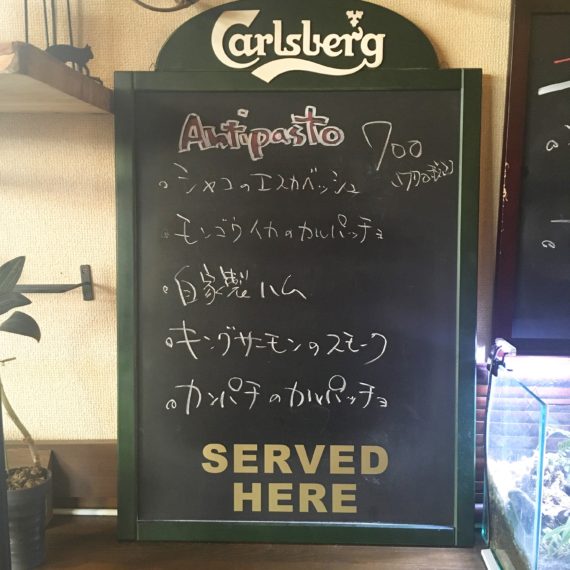 Carlsberg
Antipasto 700
シャコのエスカベッシュ
モンゴウイカのカルパッチョ
自家製ハム
キングサーモンのスモーク
カンパチのカルパッチョ
SERVED
HERE